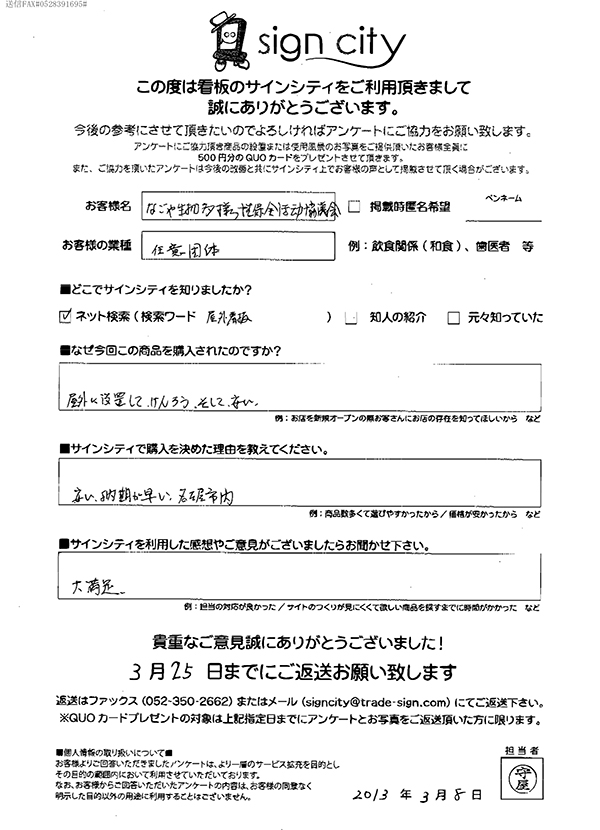 送信FAX#0528391695#
sign city
この度は看板のサインシティをご利用頂きまして
誠にありがとうございます。
今後の参考にさせて頂きたいのでよろしければアンケートにご協力をお願い致します。
アンケートにご協力頂き商品の設置または使用風景のお写真をご提供頂いたお客様全員に
500円分のQUOカードをプレゼントさせて頂きます。
また、ご協力を頂いたアンケートは今後の改善と共にサインシティ上でお客様の声として掲載させて頂く場合がございます。
お客様名 なごや生物多様性保全活動協議会 □ 掲載時匿名希望 ペンネーム
お客様の業種 任意団体 例：飲食関係（和食）、歯医者 等
■どこでサインシティを知りましたか？
☑ ネット検索（検索ワード 屋外看板 ） □ 知人の紹介 □ 元々知っていた
■なぜ今回この商品を購入されたのですか？
屋外に設置して、けんろう、そして、安い。
例：お店を新規オープンの際お客さんにお店の存在を知ってほしいから など
■サインシティで購入を決めた理由を教えてください。
安い、納期が早い、名古屋市内
例：商品数多くて選びやすかったから / 価格が安かったから など
■サインシティを利用した感想やご意見がございましたらお聞かせ下さい。
大満足。
例：担当の対応が良かった / サイトのつくりが見にくくて欲しい商品を探すまでに時間がかかった など
貴重なご意見誠にありがとうございました！
3月25日までにご返送お願い致します
返送はファックス（052-350-2662）またはメール（signcity@trade-sign.com）にてご返送下さい。
※QUOカードプレゼントの対象は上記指定日までにアンケートとお写真をご返送頂いた方に限ります。
■個人情報の取り扱いについて■
お客様よりご回答いただきましたアンケートは、より一層のサービス拡充を目的とし
その目的の範囲内において利用させていただいております。
なお、お客様からご回答いただいたアンケートの内容は、お客様の同意なく
明示した目的以外の用途に利用することはございません。
担当者
守屋
2013年3月8日